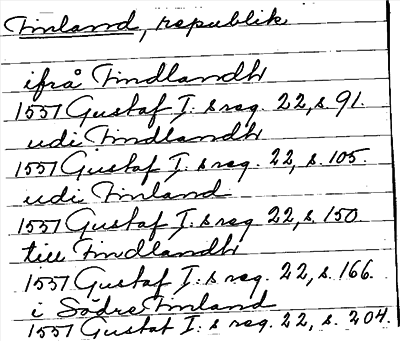 Finland, republik
ifrå Findlandh
1557 Gustaf I:s reg. 22, s. 91.
udi Findlandh
1557 Gustaf I:s reg. 22, s. 105.
udi Finland
1557 Gustaf I:s reg. 22, s. 150
till Findlandh
1557 Gustaf I:s reg. 22, s. 166.
i Södre Finland
1557 Gustaf I:s reg. 22, s. 204.